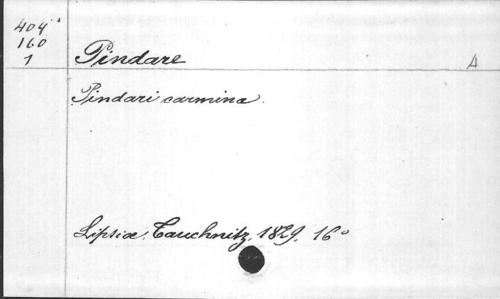 404
160
1
Pindare A
Pindari carmina.
Lipsiæ, Tauchnitz, 1829. 16°